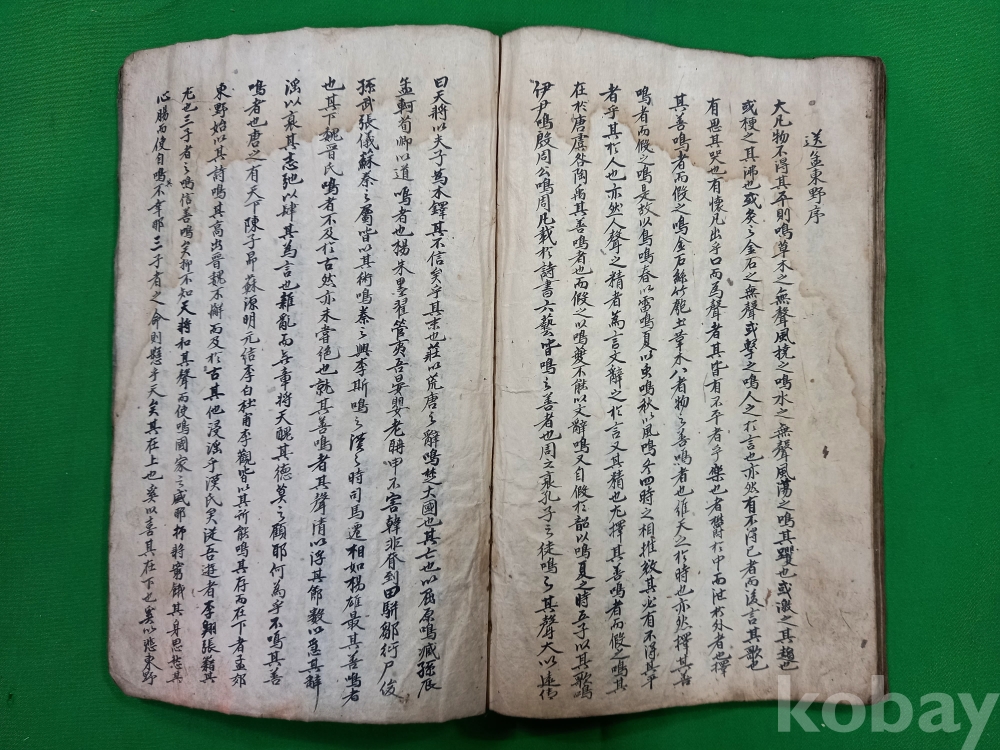 送孟東野序
大凡物不得其平則鳴草木之無聲風撓之鳴水之無聲風蕩之鳴其躍也或激之其趍也
或梗之其沸也或炙之金石之無聲或擊之鳴人之於言也亦然有不得已者而後言其歌也
有思其哭也有懷凡出乎口而為聲者其皆有不平者乎樂也者鬱於中而泄於外者也擇
其善鳴者而假之鳴金石絲竹匏土革木八者物之善鳴者也維天之於時也亦然擇其善
鳴者而假之鳴是故以鳥鳴春以雷鳴夏以虫鳴秋以風鳴冬四時之相推敚其必有不得其平
者乎其於人也亦然人聲之精者為言文辭之於言又其精也尤擇其善鳴者而假之鳴其
在於唐虞咎陶禹其善鳴者也而假之以鳴夔不能以文辭鳴又自假於韶以鳴夏之時五子以其歌鳴
伊尹鳴殷周公鳴周凡載於詩書六藝皆鳴之善者也周之衰孔子之徒鳴之其聲大以遠傳
曰天將以夫子為木鐸其不信矣乎其末也莊以荒唐之辭鳴楚大國也其亡也以屈原鳴臧孫辰
孟軻荀卿以道鳴者也楊朱墨翟管夷吾晏嬰老聃申不害韓非昚到田騈鄒衍尸佼
孫武張儀蘇秦之屬皆以其術鳴秦之興李斯鳴之漢之時司馬遷相如楊雄最其善鳴者
也其下魏晋氏鳴者不及於古然亦未嘗絶也就其善鳴者其聲清以浮其節數以急其辭
淫以哀其志弛以肆其為言也雜亂而無章將天醜其德莫之顧耶何為乎不鳴其善
鳴者也唐之有天下陳子昻蘇源明元結李白杜甫李觀皆以其所能鳴其存而在下者孟郊
東野始以其詩鳴其高出晋魏不懈而及於古其他浸淫乎漢氏矣從吾遊者李翱張籍其
尤也三子者之鳴信善鳴矣抑不知天將和其聲而使鳴國家之盛耶抑將窮餓其身思愁其
心膓而使自鳴其不幸耶三子者之命則懸乎天矣其在上也奚以喜其在下也奚以悲東野
kobay